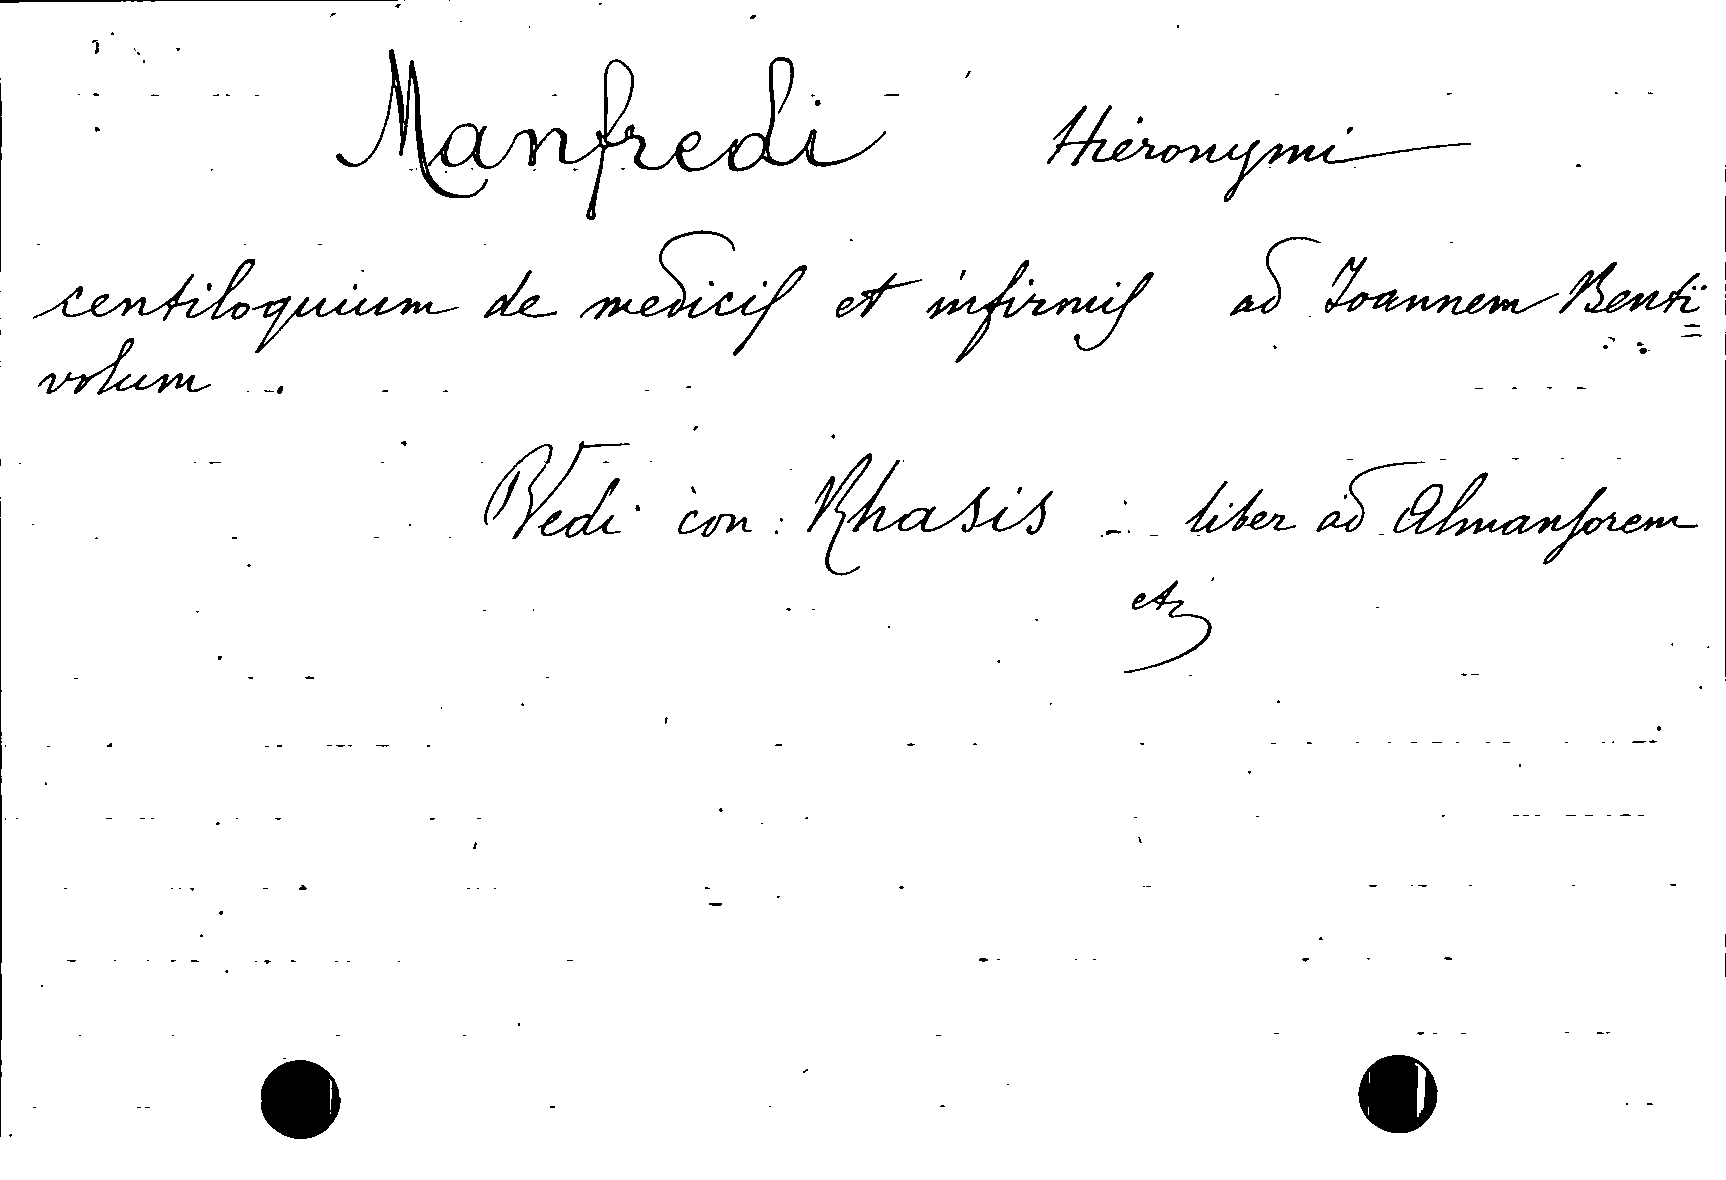 Manfredi Hieronymi
centiloquium de medicis et infirmis ad Joannem Benti=
volum.
Vedi con: Rhasis: liber ad Almansorem
etc